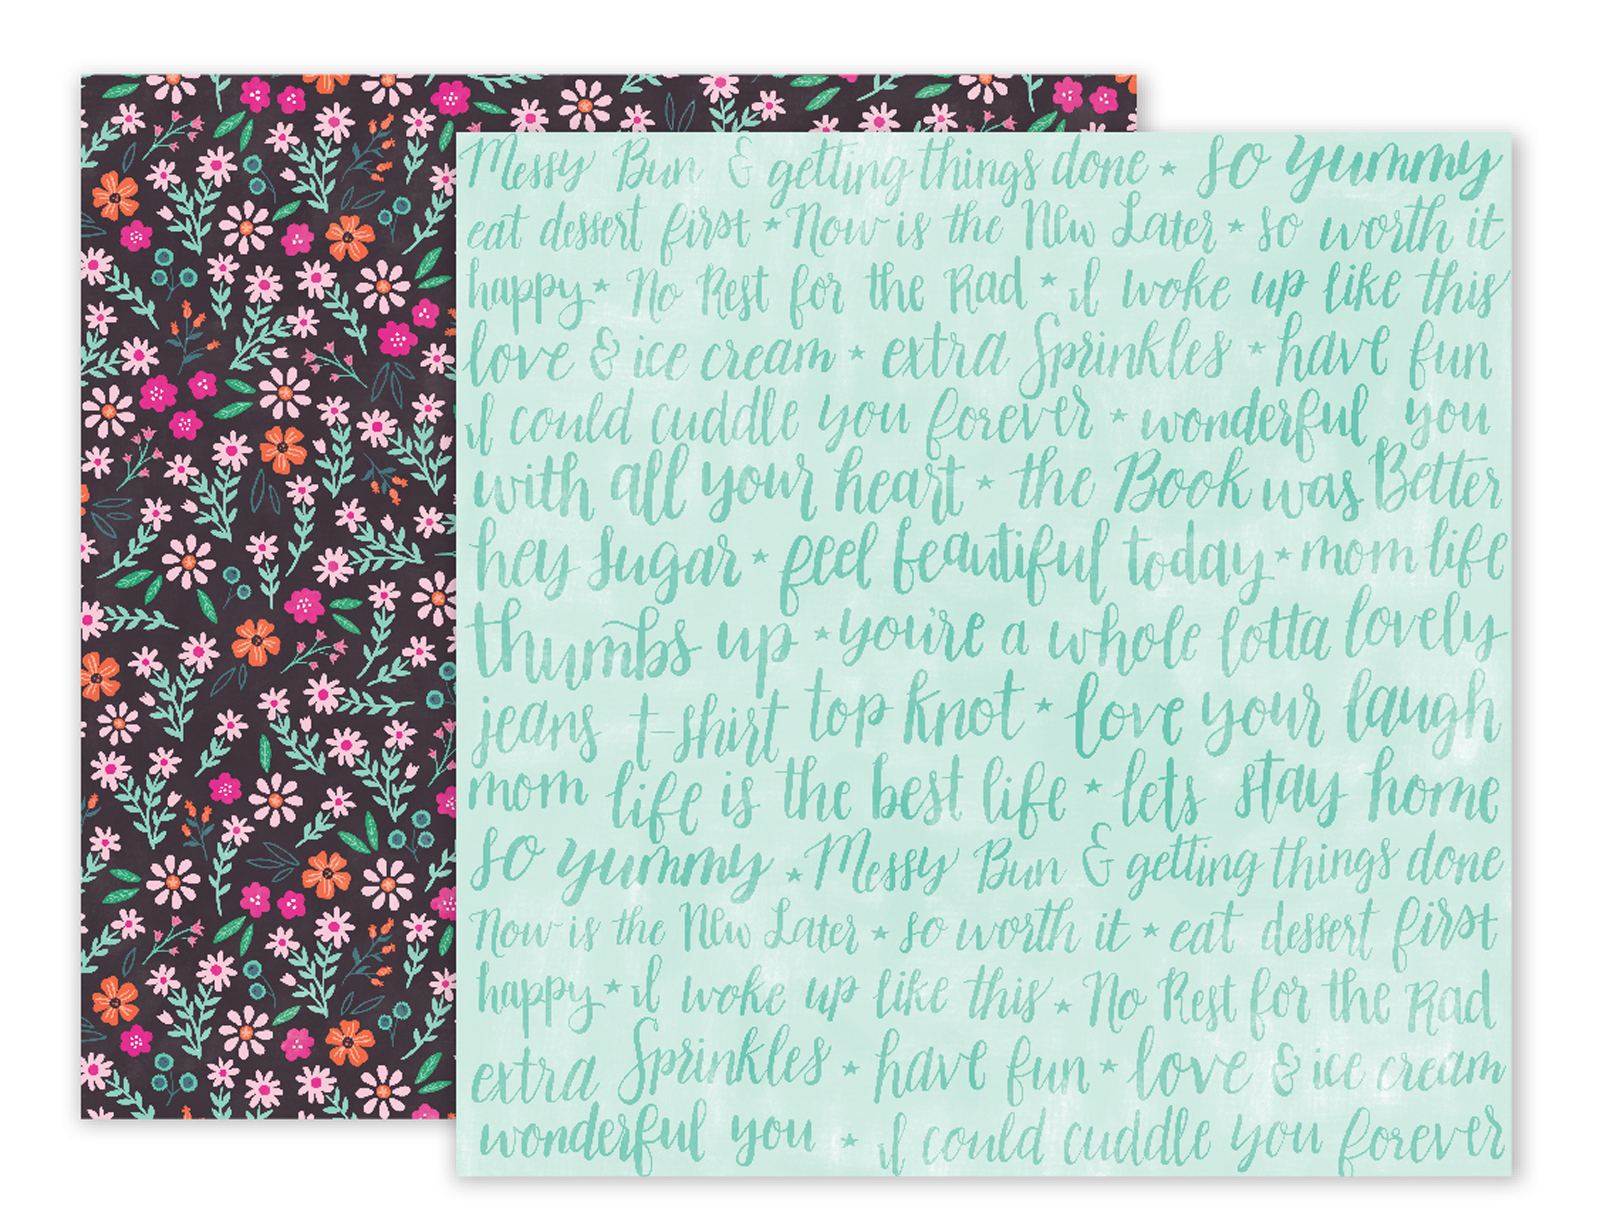 Messy Bun & getting things done ★ so yummy
eat dessert first ★ Now is the New Later ★ so worth it
happy ★ No Rest for the Rad ★ I woke up like this
love & ice cream ★ extra Sprinkles ★ have fun
I could cuddle you forever ★ wonderful you
with all your heart ★ the Book was Better
hey sugar ★ feel beautiful today ★ mom life
thumbs up ★ you're a whole lotta lovely
jeans t-shirt top knot ★ love your laugh
mom life is the best life ★ lets stay home
so yummy ★ Messy Bun & getting things done
Now is the New Later ★ so worth it ★ eat dessert first
happy ★ I woke up like this ★ No Rest for the Rad
extra Sprinkles ★ have fun ★ love & ice cream
wonderful you ★ I could cuddle you forever